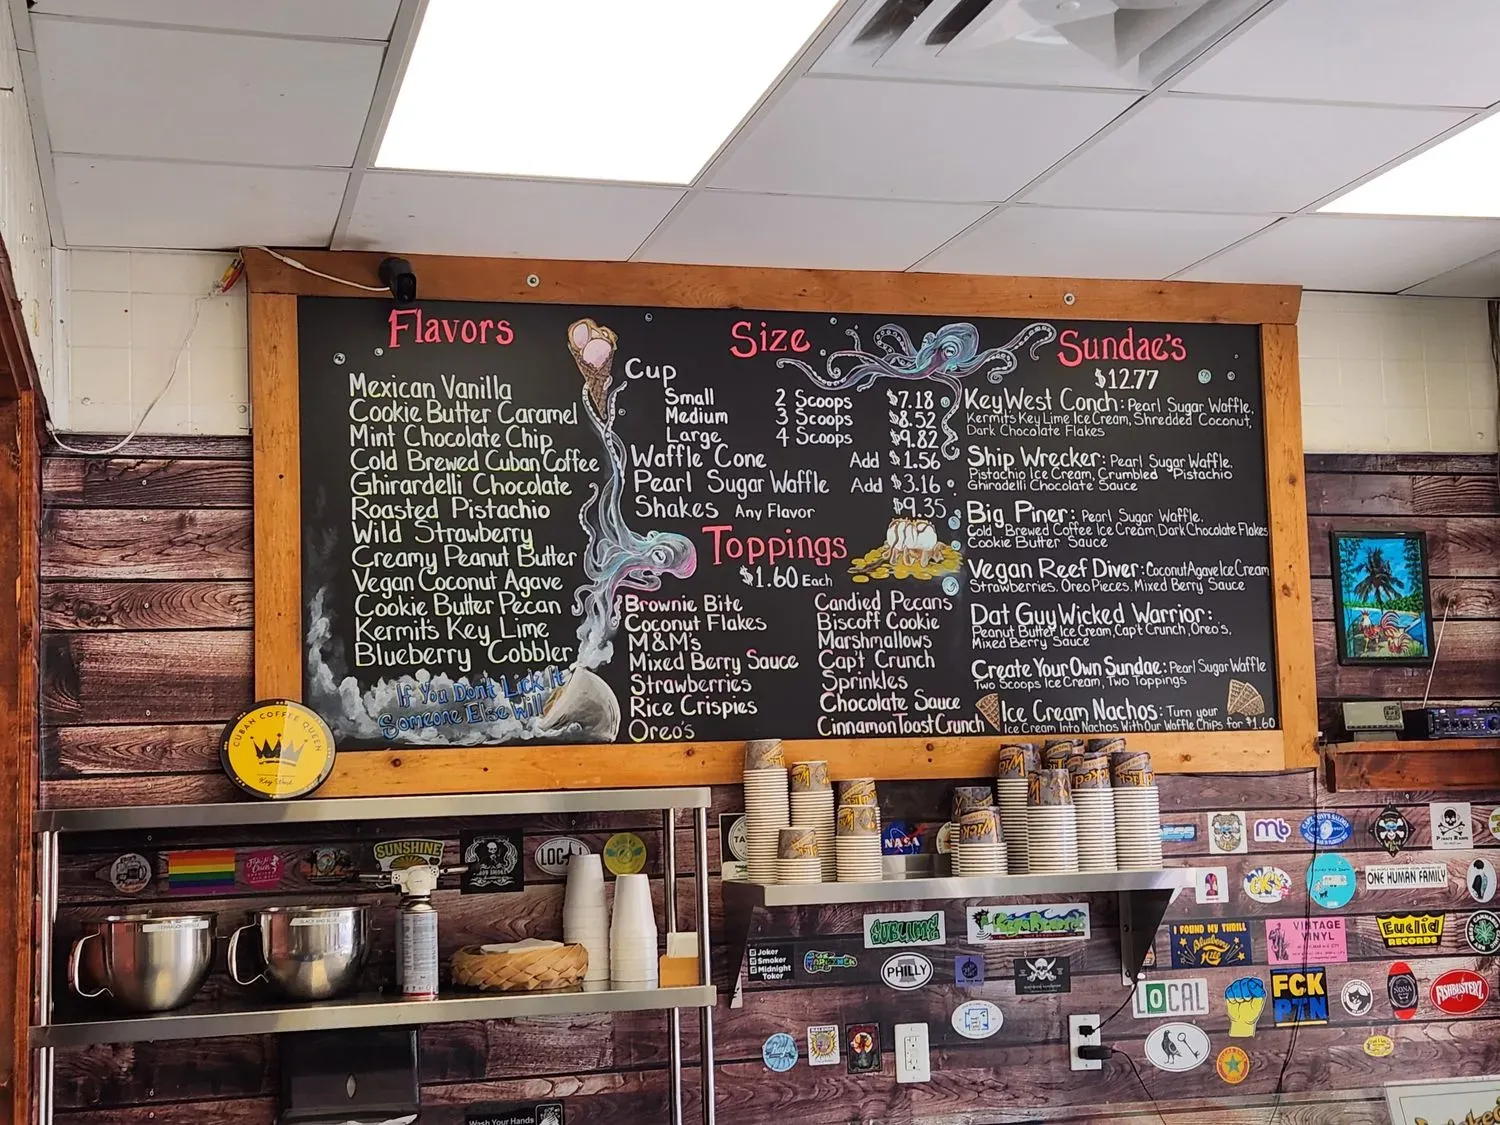 Flavors
Mexican Vanilla
Cookie Butter Caramel
Mint Chocolate Chip
Cold Brewed Cuban Coffee
Ghirardelli Chocolate
Roasted Pistachio
Wild Strawberry
Creamy Peanut Butter
Vegan Coconut Agave
Cookie Butter Pecan
Kermit's Key Lime
Blueberry Cobbler
If You Don't Lick It
Someone Else Will
Size
Cup
Small 2 Scoops $7.18
Medium 3 Scoops $8.52
Large 4 Scoops $9.82
Waffle Cone Add $1.56
Pearl Sugar Waffle Add $3.16
Shakes Any Flavor $9.35
Toppings
$1.60 Each
Brownie Bite
Coconut Flakes
M&M's
Mixed Berry Sauce
Strawberries
Rice Crispies
Oreo's
Candied Pecans
Biscoff Cookie
Marshmallows
Cap't Crunch
Sprinkles
Chocolate Sauce
Cinnamon Toast Crunch
Sundae's
$12.77
Key West Conch: Pearl Sugar Waffle,
Kermits Key Lime Ice Cream, Shredded Coconut,
Dark Chocolate Flakes
Ship Wrecker: Pearl Sugar Waffle,
Pistachio Ice Cream, Crumbled Pistachio
Ghiradelli Chocolate Sauce
Big Piner: Pearl Sugar Waffle,
Cold Brewed Coffee Ice Cream, Dark Chocolate Flakes
Cookie Butter Sauce
Vegan Reef Diver: Coconut Agave Ice Cream
Strawberries, Oreo Pieces, Mixed Berry Sauce
Dat Guy Wicked Warrior:
Peanut Butter Ice Cream, Cap't Crunch, Oreo's,
Mixed Berry Sauce
Create Your Own Sundae: Pearl Sugar Waffle
Two Scoops Ice Cream, Two Toppings
Ice Cream Nachos: Turn your
Ice Cream Into Nachos With Our Waffle Chips for $1.60
CUBAN COFFEE QUEEN
Key West
SUNSHINE
LOCAL
NASA
SUBLIME
Joker
Smoker
Midnight
Toker
PHILLY
ONE HUMAN FAMILY
I FOUND MY THRILL
Blueberry
Hill
VINTAGE
VINYL
Euclid
RECORDS
LOCAL
FCK
PTN
NONA
FISHBUSTERZ
Wash Your Hands